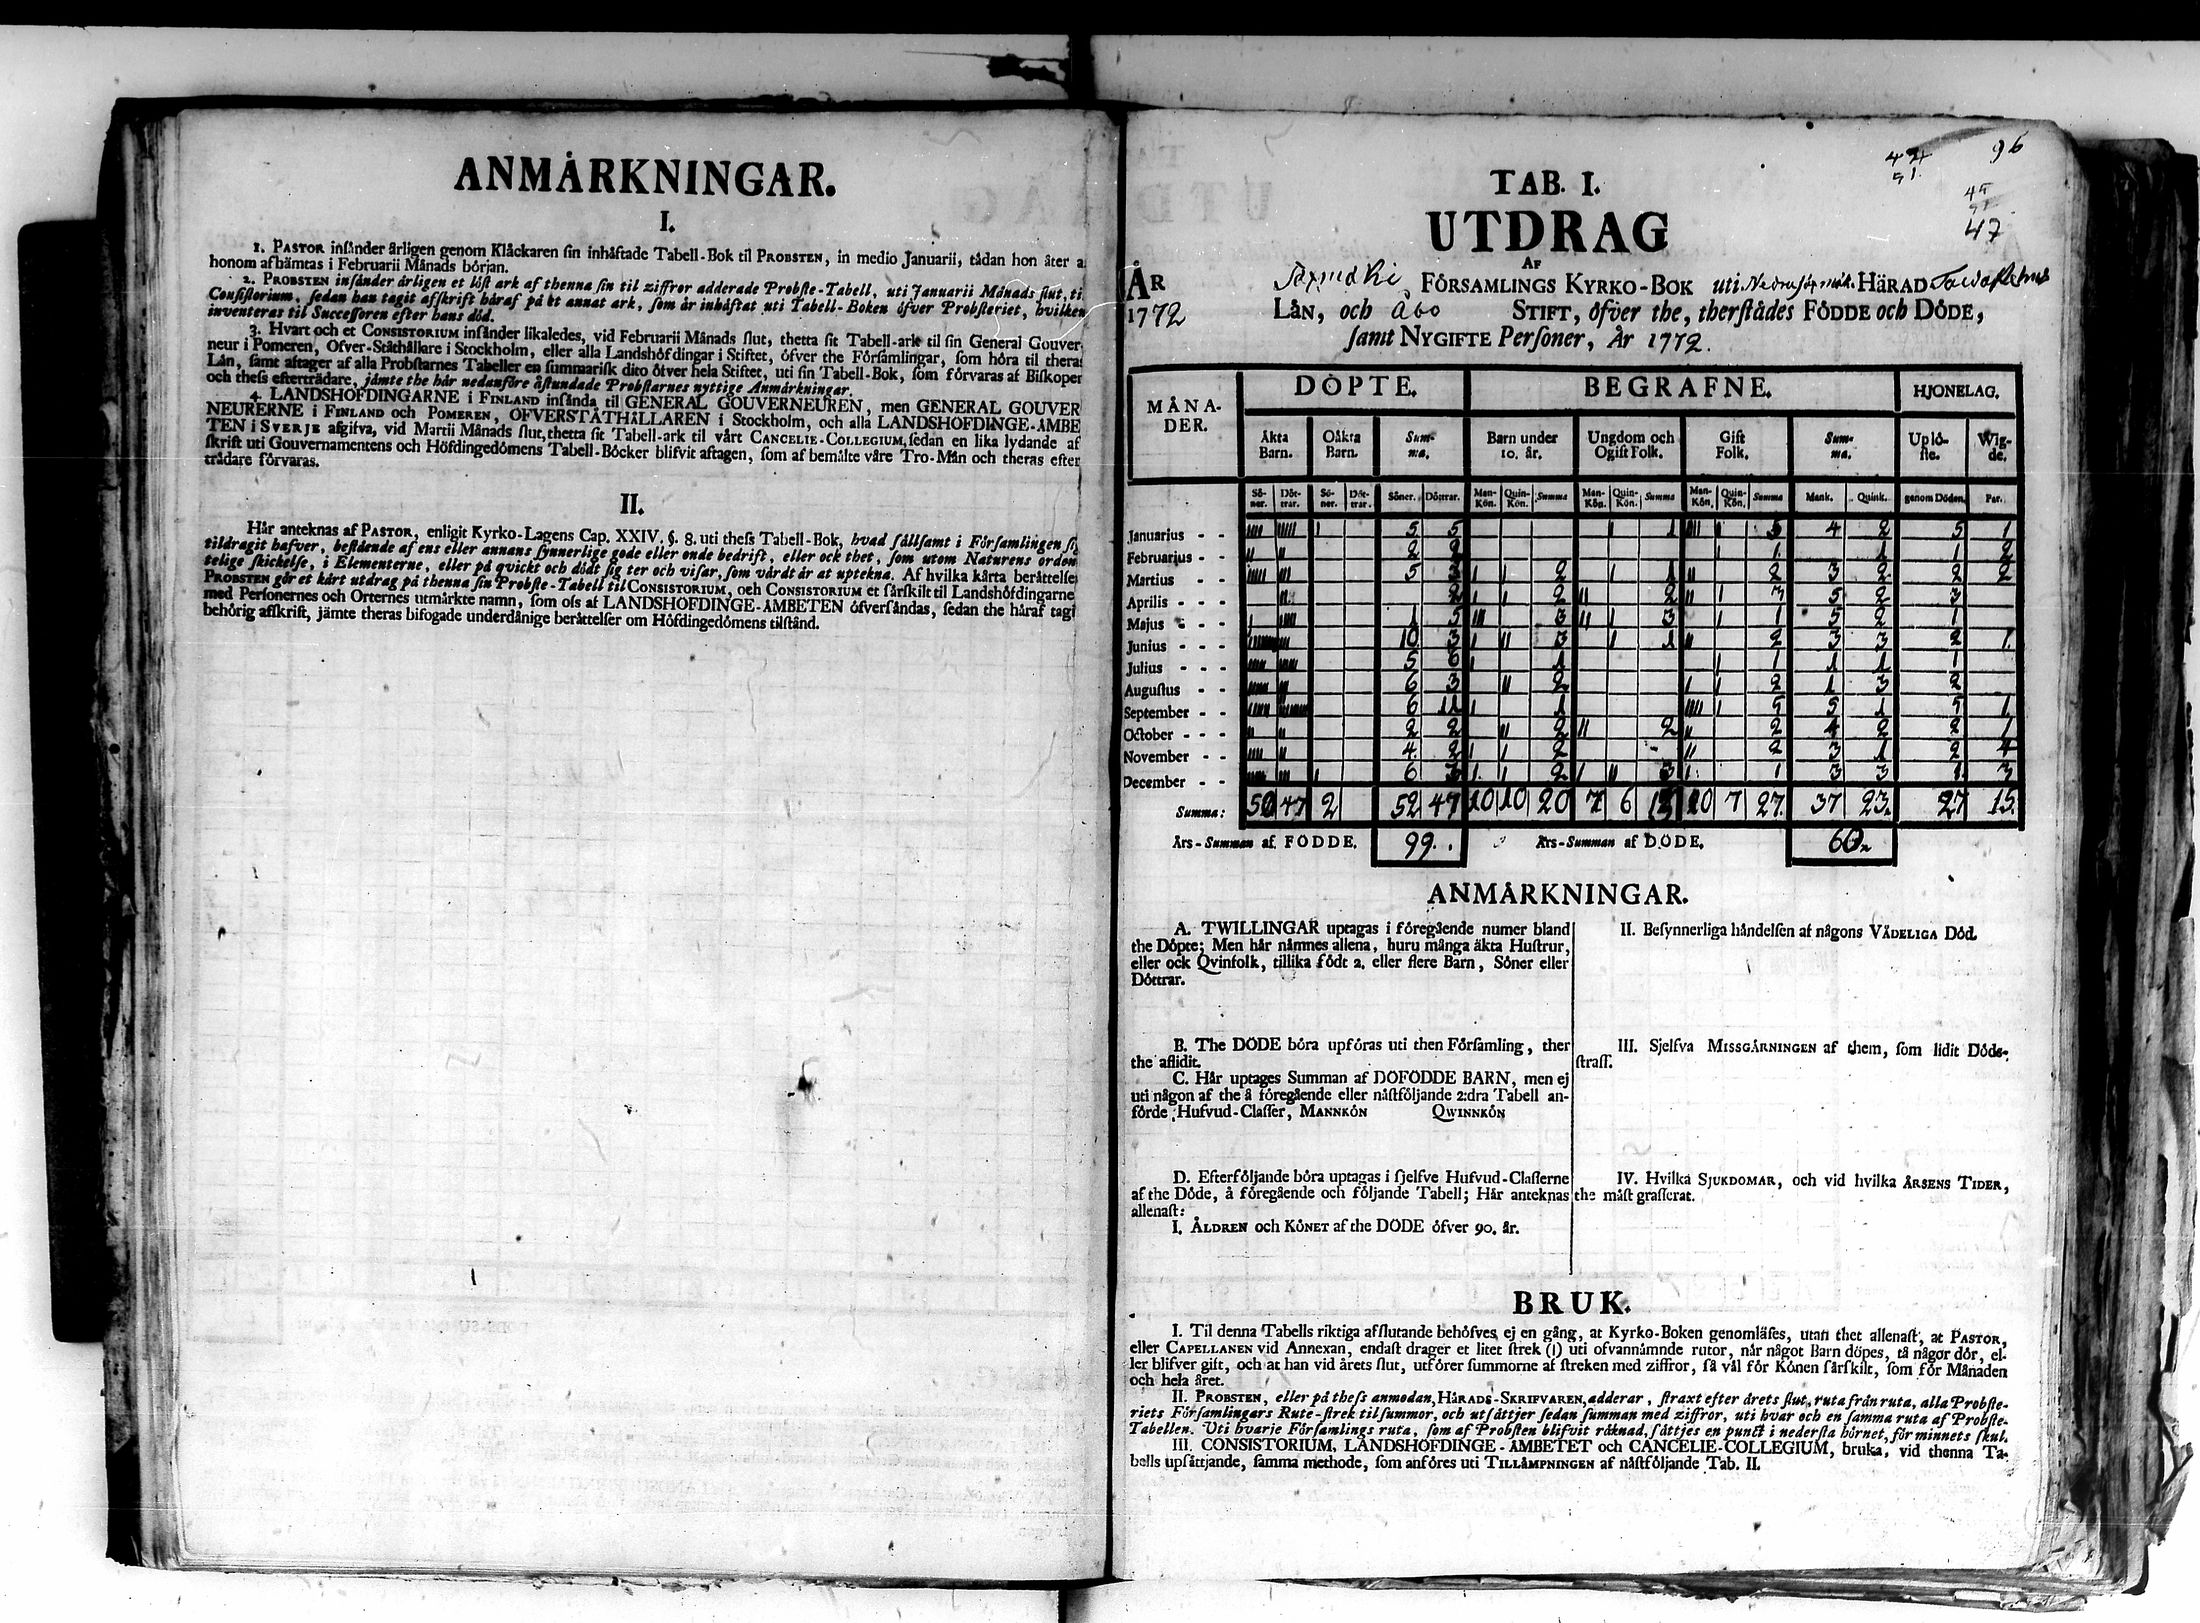 ANMÅRKNINGAR.
I.
1. PASTOR insånder årligen genom Klåckaren sin inhåftade Tabell-Bok til PROBSTEN, in medio Januarii, tådan hon åter a
honom afhämtas i Februarii Månads början.
2. PROBSTEN insånder årligen et löst ark af thenna sin til ziffror adderade Probste-Tabell, uti Januarii Månads slut, ti
Consistorium, sedan han tagit afskrift håraf på et annat ark, som är inhåftat uti Tabell-Boken öfver Probsteriet, hvilken
inventeras til Successoren efter hans död.
3. Hvart och et CONSISTORIUM insånder likaledes, vid Februarii Månads slut, thetta sit Tabell-ark til sin General Gouver
neur i Pomeren, Öfver-Ståthållare i Stockholm, eller alla Landshöfdingar i Stiftet, öfver the Församlingar, som höra til theras
Lån, samt aftager af alla Probstarnes Tabeller en summarisk dito öfver hela Stiftet, uti sin Tabell-Bok, som förvaras af Biskopen
och thess efterträdare, jämte the hår nedanföre åstundade Probstarnes nyttige Anmårkningar.
4. LANDSHÖFDINGARNE i FINLAND insånda til GENERAL GOUVERNEUREN, men GENERAL GOUVER
NEURERNE i FINLAND och POMEREN, ÖFVERSTÅTHÅLLAREN i Stockholm, och alla LANDSHÖFDINGE-ÅMBE
TEN i SVERJE afgifva, vid Martii Månads slut, thetta sit Tabell-ark til vårt CANCELIE-COLLEGIUM, sedan en lika lydande af
skrift uti Gouvernamentens och Höfdingedömens Tabell-Böcker blifvit aftagen, som af bemålte våre Tro-Mån och theras efter
trådare förvaras.
II.
Hår anteknas af PASTOR, enligit Kyrko-Lagens Cap. XXIV. §. 8. uti thess Tabell-Bok, hvad sållsamt i Församlingen si
tildragit hafver, bestående af ens eller annans synnerlige gode eller onde bedrift, eller ock thet, som utom Naturens orden
telige skickelse, i Elementerne, eller på qvickt och dödt sig ter och visar, som vårdt är at uptekna. Af hvilka kårta beråttelser
PROBSTEN gör et kårt utdrag på thenna sin Probste-Tabell til CONSISTORIUM, och CONSISTORIUM et sårskilt til Landshöfdingarne
med Personernes och Orternes utmårkte namn, som oss af LANDSHÖFDINGE-ÅMBETEN öfversåndas, sedan the håraf tagi
behörig afskrift, jämte theras bifogade underdånige beråttelser om Höfdingedömens tilstånd.
96
47
TAB. I.
UTDRAG
AF
ÅR FÖRSAMLINGS KYRKO-BOK uti HÄRAD
1772 LÅN, och Åbo STIFT, öfver the, therstådes FÖDDE och DÖDE,
samt NYGIFTE Personer, År 1772.
MÅNA-DER. DÖPTE. BEGRAFNE. HJONELAG.
Äkta Barn. Oåkta Barn. Summa. Barn under 10. år. Ungdom och Ogift Folk. Gift Folk. Summa. Uplöste. Wigde.
Söner. Döttrar. Söner. Döttrar. Söner. Döttrar. Man-Kön. Quin-Kön. Summa Man-Kön. Quin-Kön. Summa Man-Kön. Quin-Kön. Summa Mank. Quink. genom Döden. Par.
Januarius - - 5 5 1 5 4 2 5 1
Februarius - - 2 2 1 1 1 2
Martius - - 5 3 2 1 2 3 2 2 2
Aprilis - - - 2 2 2 3 5 2 3
Majus - - - 1 5 3 3 1 5 2 1
Junius - - - 10 3 3 1 2 3 3 2 1
Julius - - - 5 6 1 1 1 1 1
Augustus - - 6 3 2 2 1 3 2
September - - 6 11 1 5 5 1 5 1
October - - - 2 2 2 2 2 4 2 2 1
November - - 4 2 2 2 3 1 2 4
December - - 6 3 2 3 1 3 3 1 3
Summa: 50 47 2 52 47 10 10 20 7 6 13 20 7 27 37 23 27 15
Års-Summan af FÖDDE. 99. Års-Summan af DÖDE. 60
ANMÅRKNINGAR.
A. TWILLINGAR uptagas i föregående numer bland
the Döpte; Men hår nämnes allena, huru många äkta Hustrur,
eller ock Qvinfolk, tillika födt 2. eller flere Barn, Söner eller
Döttrar.
B. The DÖDE böra upföras uti then Församling, ther
the aflidit.
C. Hår uptages Summan af DÖFÖDDE BARN, men ej
uti någon af the å föregående eller nåstföljande 2:dra Tabell an-
förde Hufvud-Classer, MANNKÖN QWINNKÖN
D. Efterföljande böra uptagas i sjelfve Hufvud-Classerne
af the Döde, å föregående och följande Tabell; Hår anteknas
allenast:
I. ÅLDREN och KÖNET af the DÖDE öfver 90. år.
II. Besynnerliga håndelsen af någons VÅDELIGA Död.
III. Sjelfva MISSGÅRNINGEN af them, som lidit Döds-
straff.
IV. Hvilka SJUKDOMAR, och vid hvilka ÅRSENS TIDER,
the måst grasserat.
BRUK.
I. Til denna Tabells riktiga afslutande behöfves ej en gång, at Kyrko-Boken genomläses, utan thet allenast, at PASTOR,
eller CAPELLANEN vid Annexan, endast drager et litet strek (|) uti ofvannämnde rutor, når något Barn döpes, tå någor dör, el-
ler blifver gift, och at han vid årets slut, utförer summorne af streken med ziffror, så vål för Könen sårskilt, som för Månaden
och hela året.
II. PROBSTEN, eller på thess anmodan, HÅRADS-SKRIFVAREN, adderar, straxt efter årets slut, ruta från ruta, alla Probste-
riets Församlingars Rute-strek til summor, och utsåttjer sedan summan med ziffror, uti hvar och en samma ruta af Probste-
Tabellen. Uti hvarje Församlings ruta, som af Probsten blifvit råknad, såttjes en punct i nedersta hörnet, för minnets skul.
III. CONSISTORIUM, LANDSHÖFDINGE-ÅMBETET och CANCELIE-COLLEGIUM, bruka, vid thenna Ta-
bells upsåttjande, samma methode, som anföres uti TILLÅMPNINGEN af nåstföljande Tab. II.